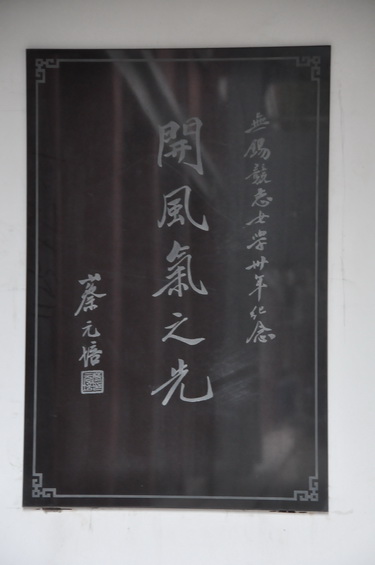 無錫競志女学卅年紀念
開風氣之光
蔡元培